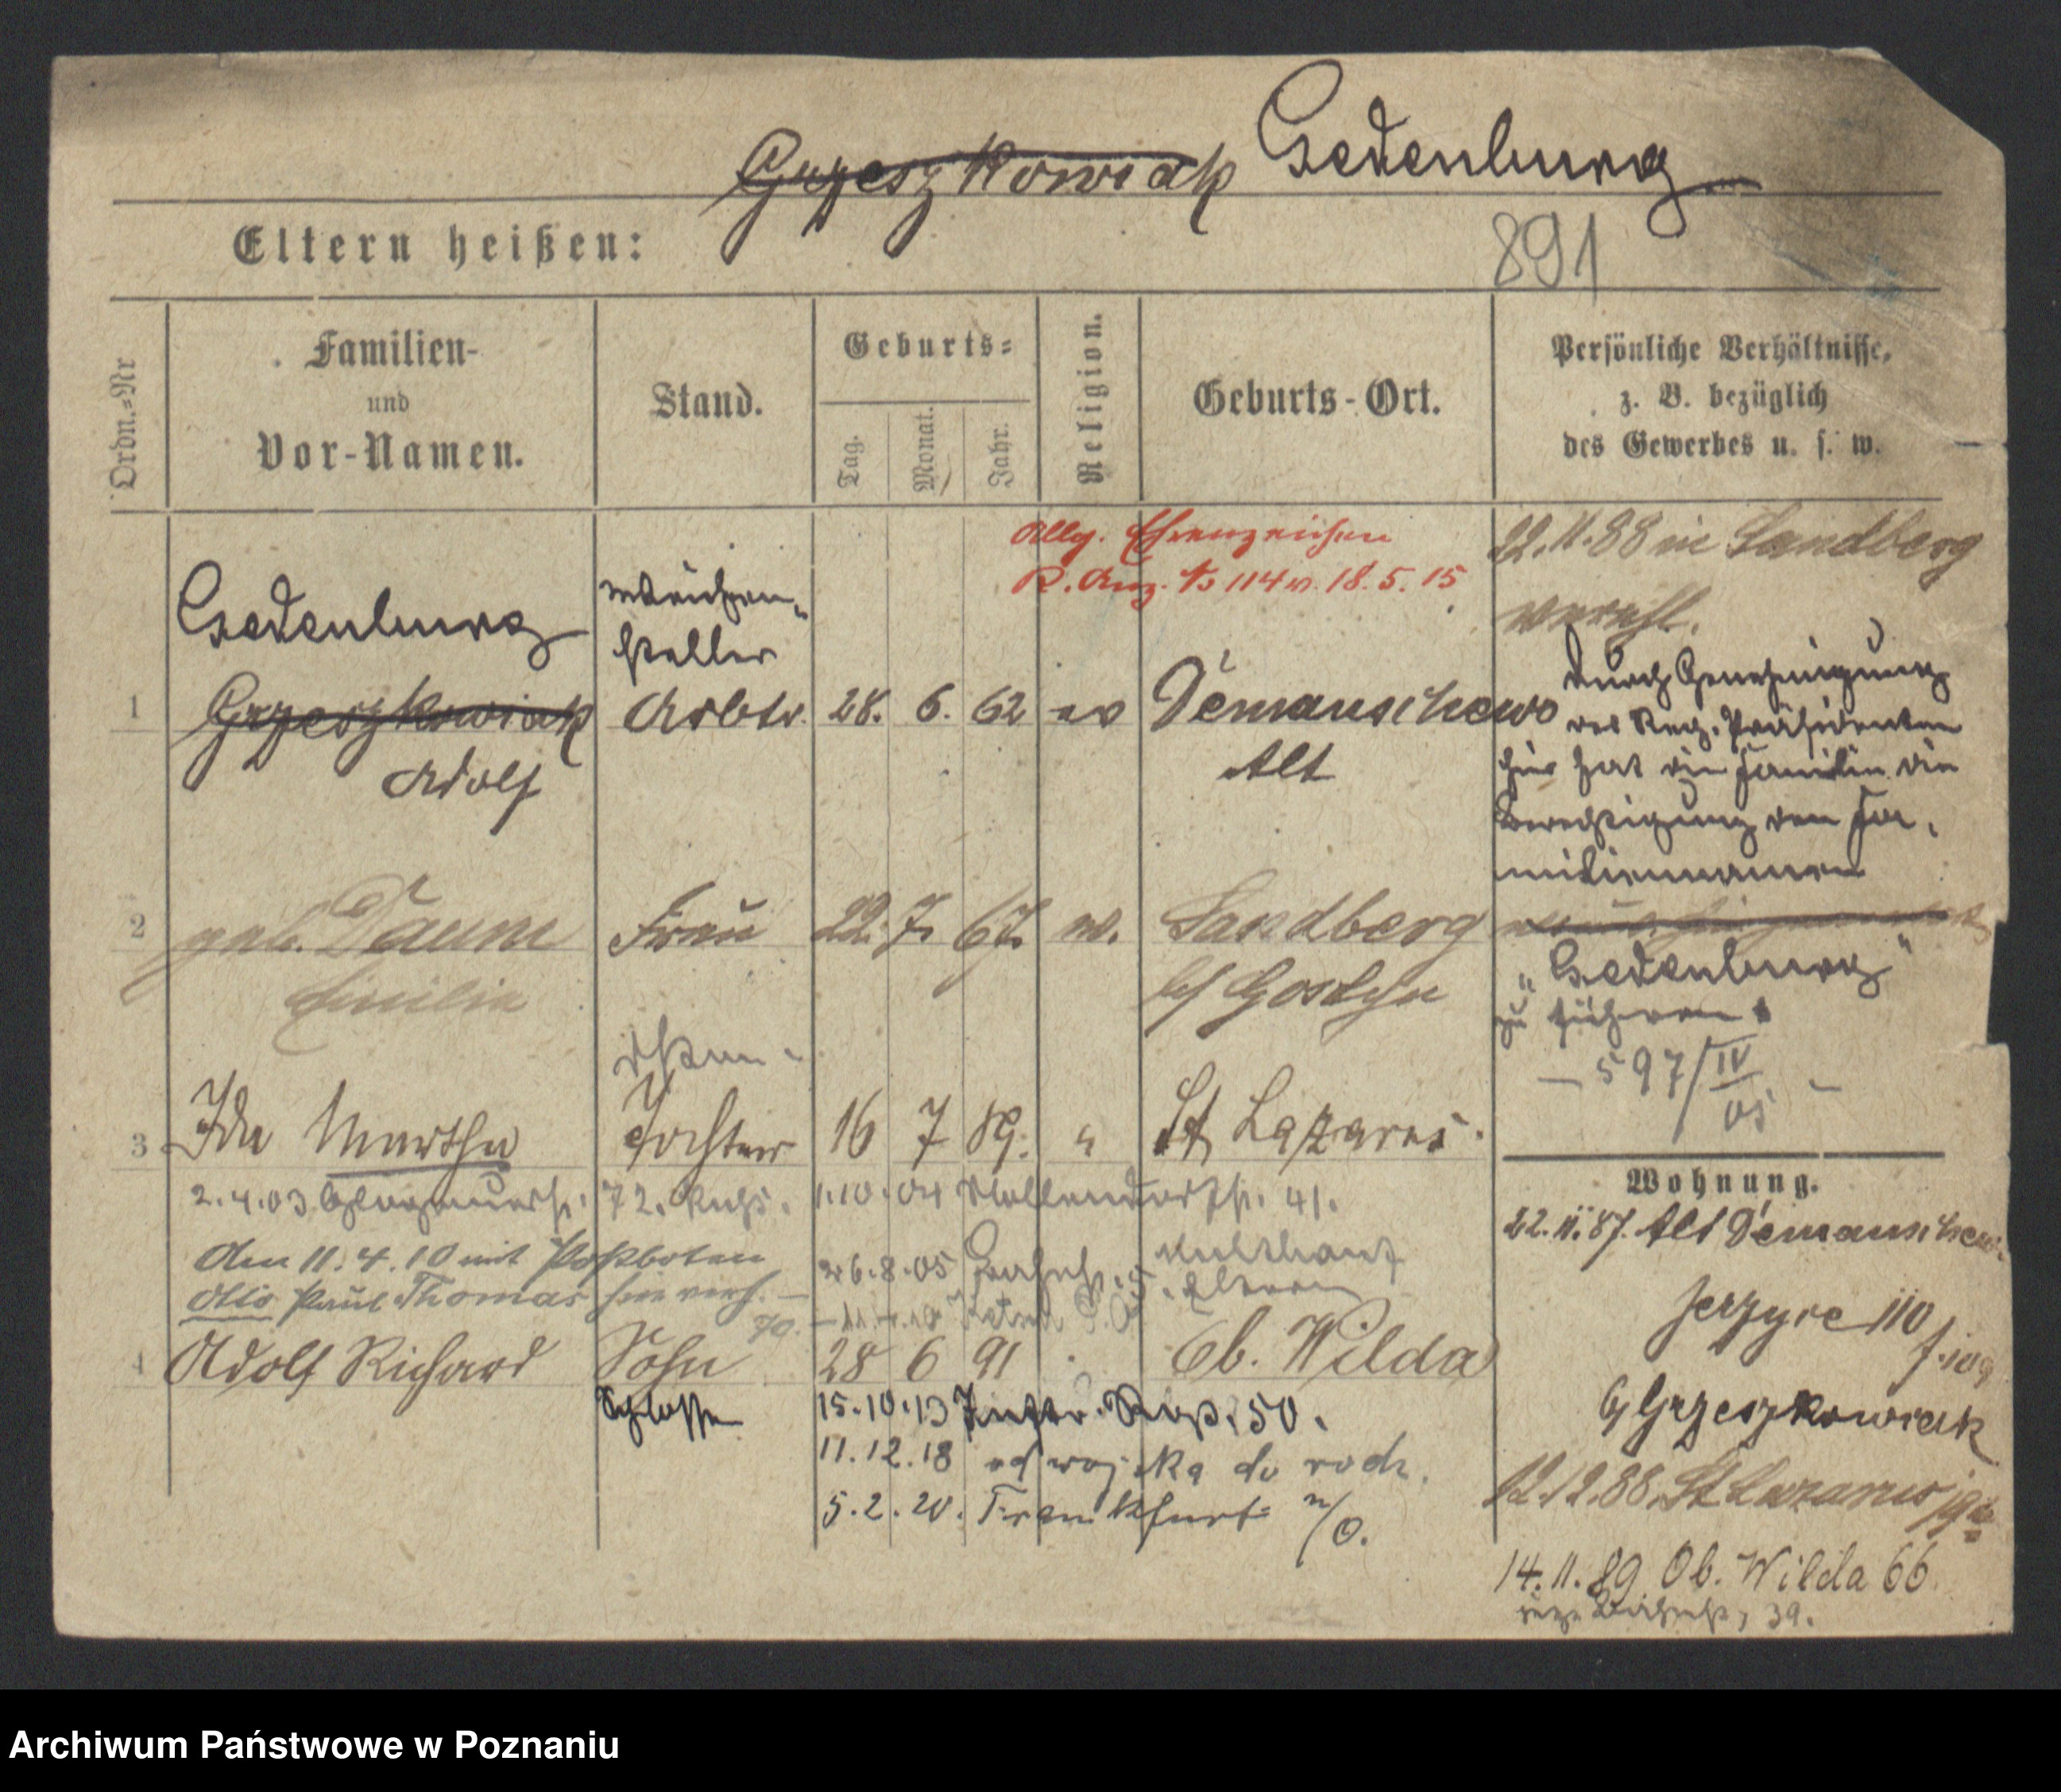 Grzeszkowiak Gedenburg
Eltern heißen:
891
Ordn.=Nr
Familien-
und
Vor-Namen.
Stand.
Geburts=
Tag.
Monat.
Jahr.
Religion.
Geburts-Ort.
Persönliche Verhältnisse,
z. B. bezüglich
des Gewerbes u. s. w.
Allg. Ehrenzeichen
R. Anz. No 114 v. 18. 5. 15
22.11.88 in Sandberg
verehl.
Gedenburg
Weichen-
steller
1 Grzeszkowiak Arbtr. 28. 6. 62 ev Demanschewo
Adolf
Alt
durch Genehmigung
des Reg. Präsidenten
hier hat die Familie die
Berechtigung den Fa-
miliennamen
"Gedenburg"
zu führen
- 597/IV 05 -
2 geb. Daum Frau 22. 7. 67. ev. Sandberg
Emilie
b/ Gostyn
3 Ida Martha Tochter 16 7 89. " St Lazarus.
2.4.03 Glogauerst. 72. 1.10.04 41.
Am 11.4.10 mit Postboten
Otto Paul Thomas hier verh. -
26.8.05
Eltern
4 Adolf Richard Sohn 28 6 91 Ob. Wilda
Schlosser
15.10.13 Inftr. Regt. 50.
11.12.18 od wojska do rodz.
5.2.20. Frankfurt a/O.
Wohnung.
22.11.87. Alt Demanschewo
Jerzyce 110
b/ Grzeszkowiak
12.12.88. St Lazarus
14.11.89 Ob. Wilda 66
39.
Archiwum Państwowe w Poznaniu